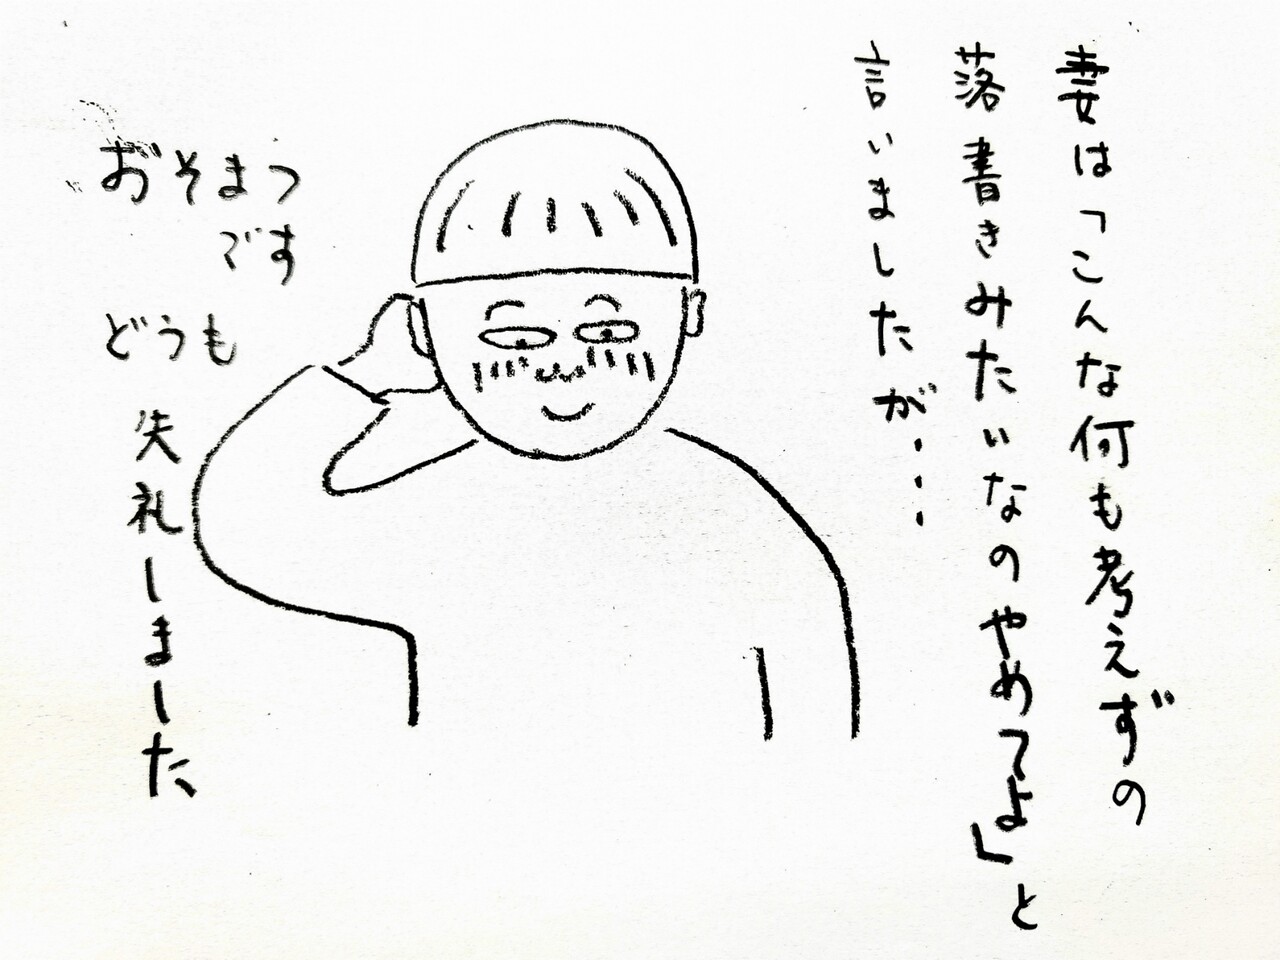 妻は「こんな何も考えずの
落書きみたいなのやめてよ」と
言いましたが・・・
おそまつ
です
どうも
失礼しました